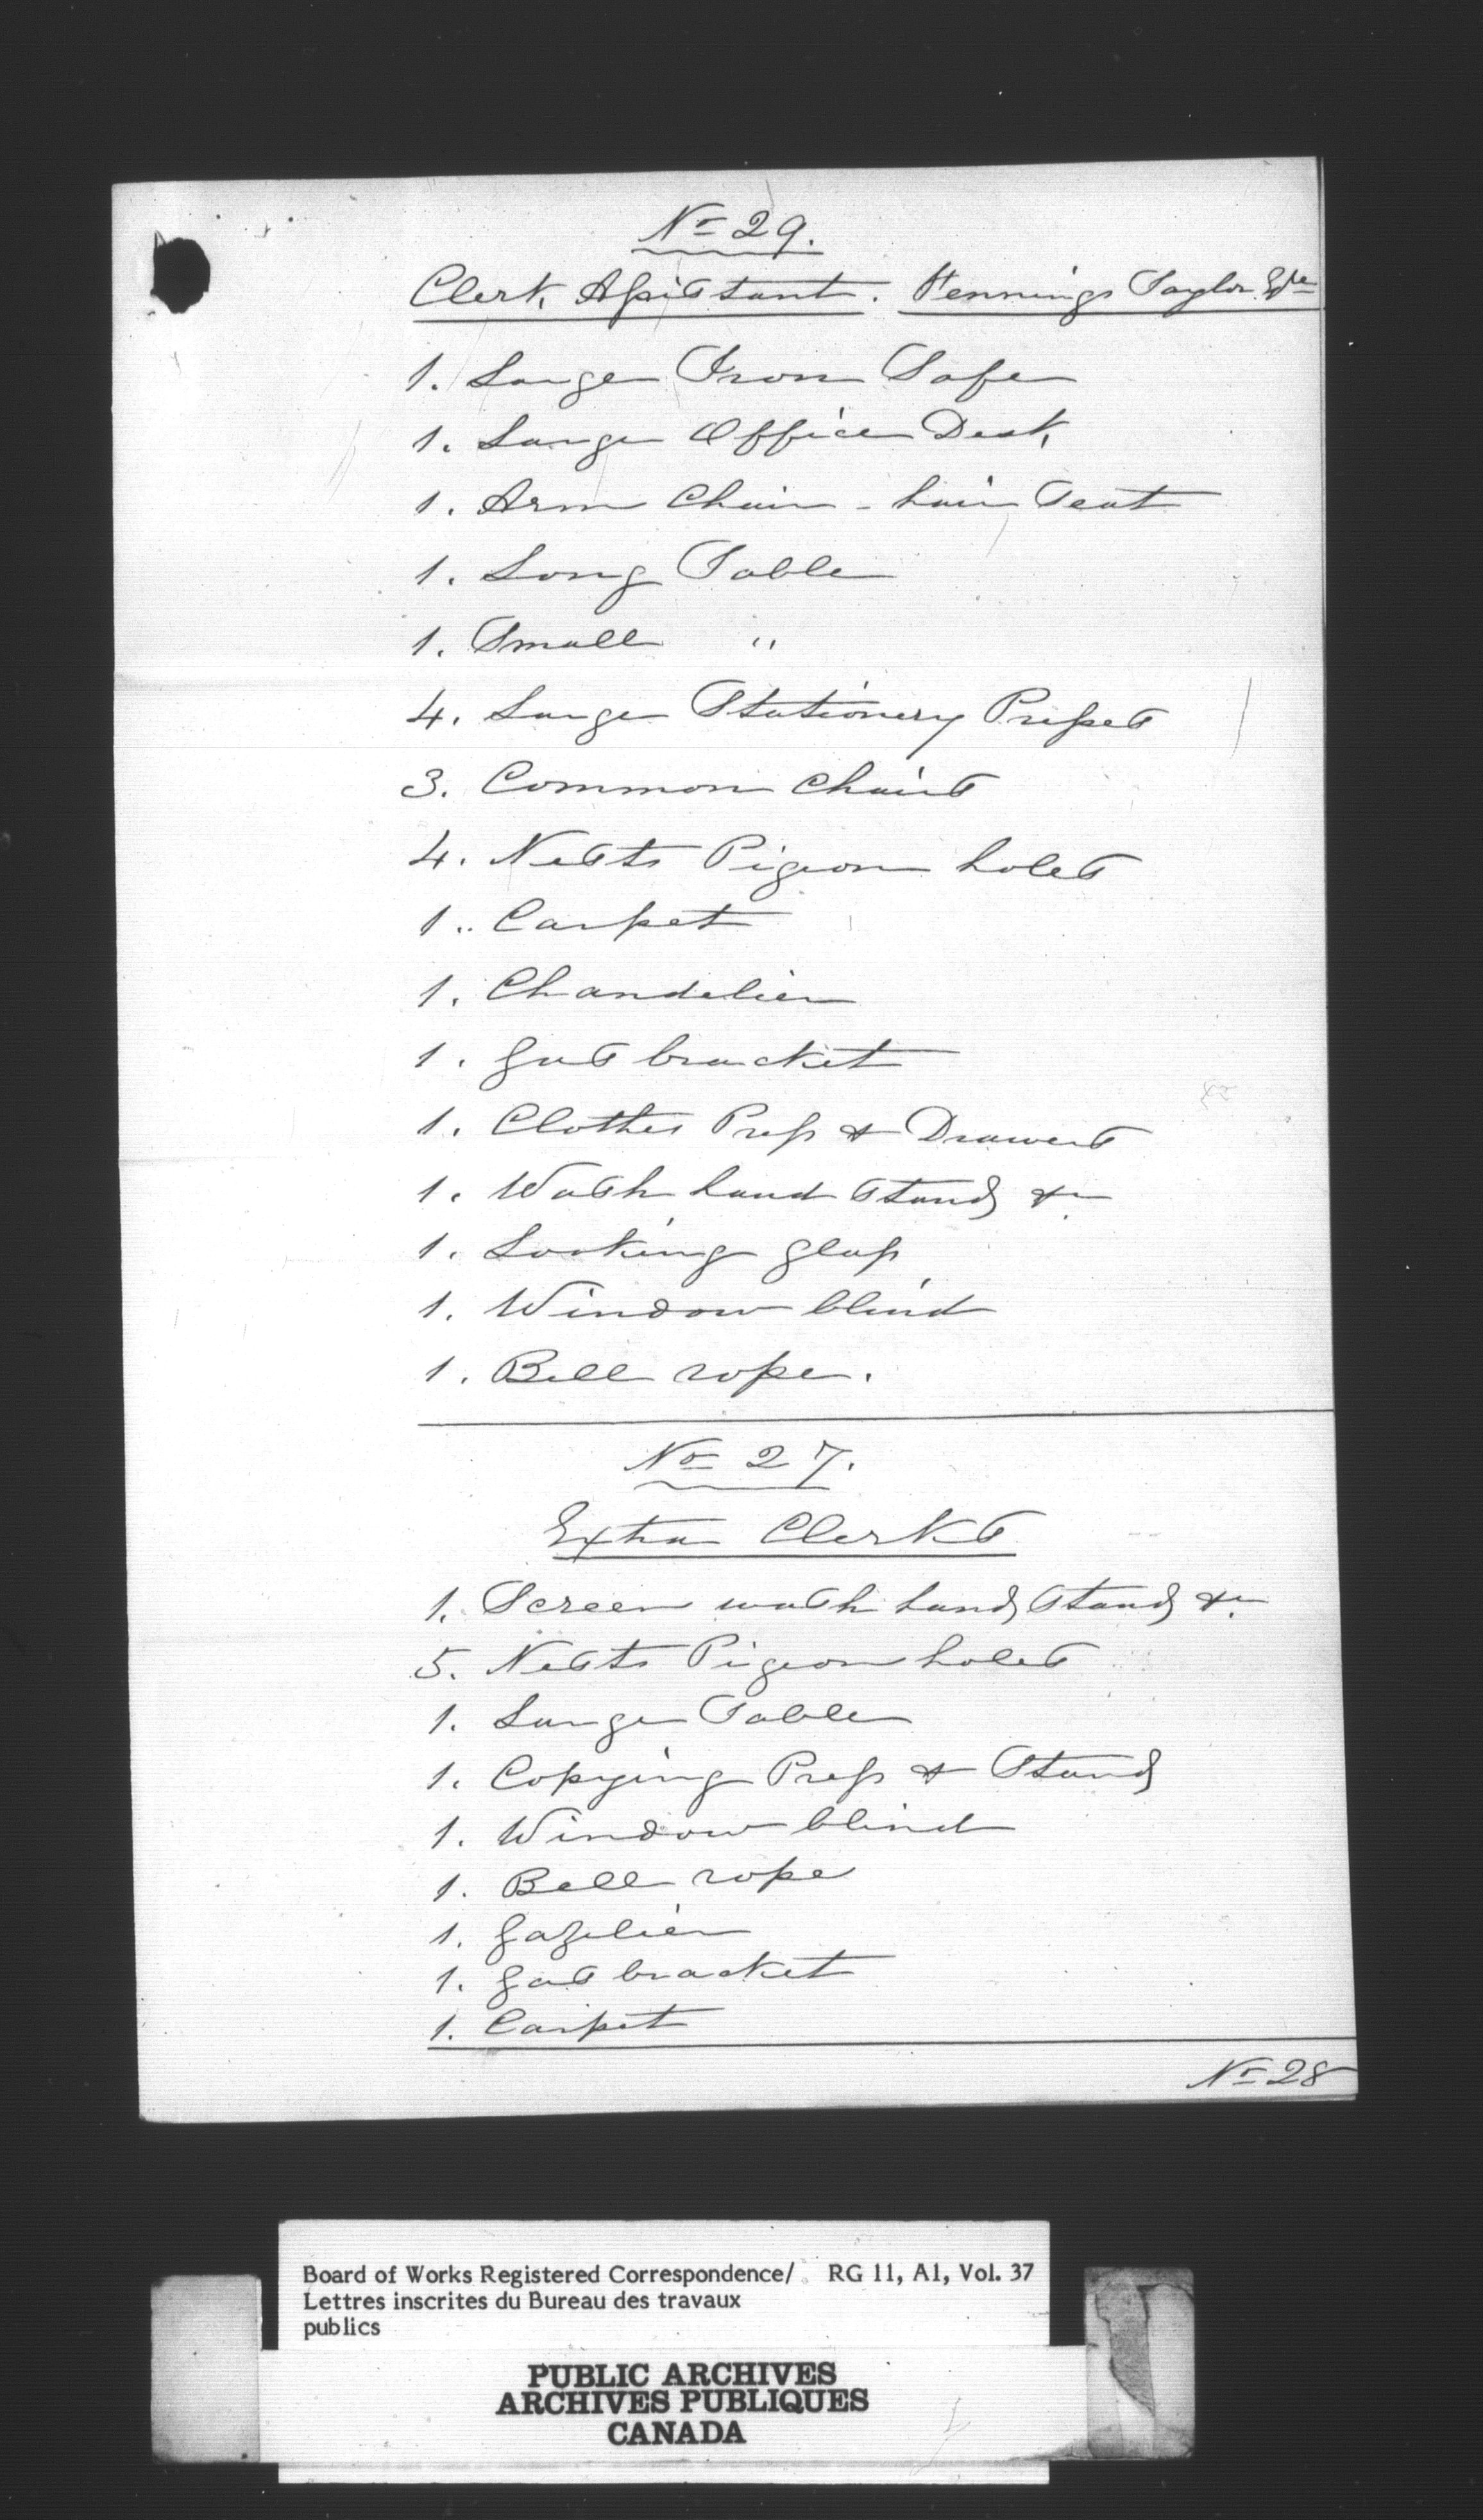 No 29.
Clerk Assistant. Fennings Taylor Esqre
1. Large Iron Safe
1. Large Office Desk
1. Arm Chair - hair Seat
1. Long Table
1. Small "
4. Large Stationery Presses
3. Common Chairs
4. Nests Pigeon holes
1. Carpet
1. Chandelier
1. Gas bracket
1. Clothes Press & Drawers
1. Wash hand Stand &c
1. Looking glass
1. Window blind
1. Bell rope.
No 27.
Extra Clerks
1. Screen wash hand Stand &c
5. Nests Pigeon holes
1. Large Table
1. Copying Press & Stand
1. Window blind
1. Bell rope
1. Gazelier
1. Gas bracket
1. Carpet
No 28
Board of Works Registered Correspondence/ RG 11, A1, Vol. 37
Lettres inscrites du Bureau des travaux
publics
PUBLIC ARCHIVES
ARCHIVES PUBLIQUES
CANADA